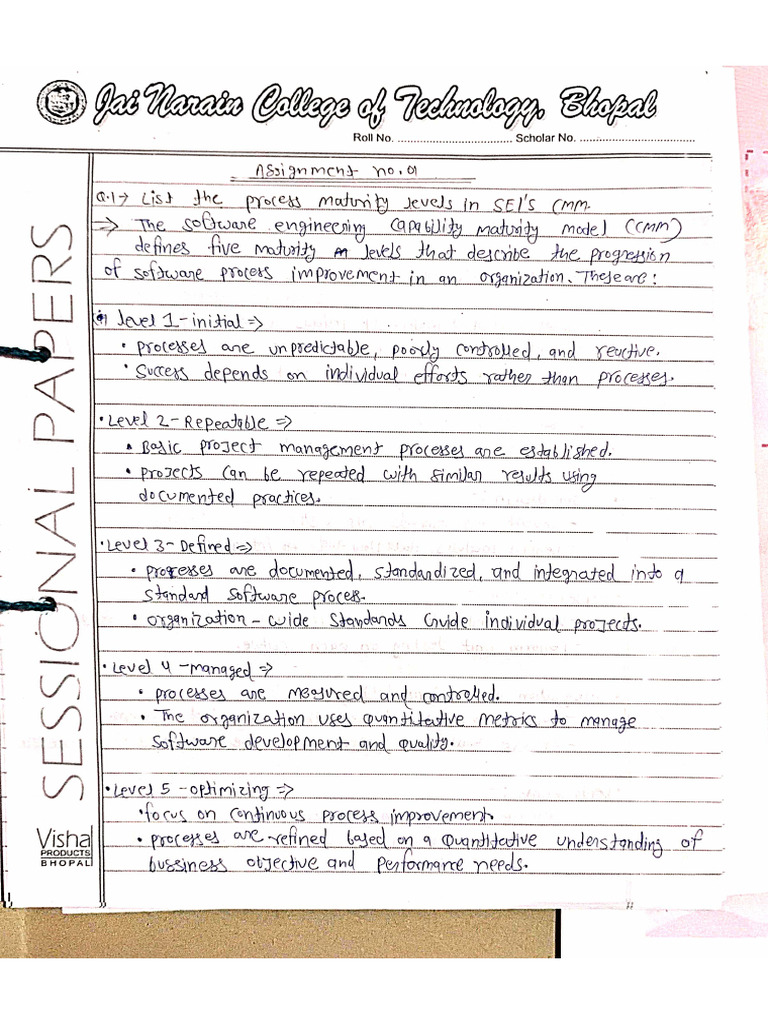 Jai Narain College of Technology, Bhopal
Roll No. ................................ Scholar No. ................................
Assignment no. 01
Q.1→ List the process maturity levels in SEI's CMM.
⇒ The software engineering capability maturity model (CMM)
defines five maturity levels that describe the progression
of software process improvement in an organization. These are:
Level 1 - initial ⇒
• processes are unpredictable, poorly controlled, and reactive.
• Success depends on individual efforts rather than processes.
• Level 2 - Repeatable ⇒
• Basic project management processes are established.
• projects can be repeated with similar results using
documented practices.
• Level 3 - Defined ⇒
• processes are documented, standardized, and integrated into a
standard software process.
• organization - wide standards Guide individual projects.
• Level 4 - managed ⇒
• processes are measured and controlled.
• The organization uses quantitative metrics to manage
software development and quality.
• Level 5 - optimizing ⇒
• focus on continuous process improvement.
• processes are refined based on a quantitative understanding of
bussiness objective and performance needs.
SESSIONAL PAPERS
Visha
PRODUCTS
BHOPAL